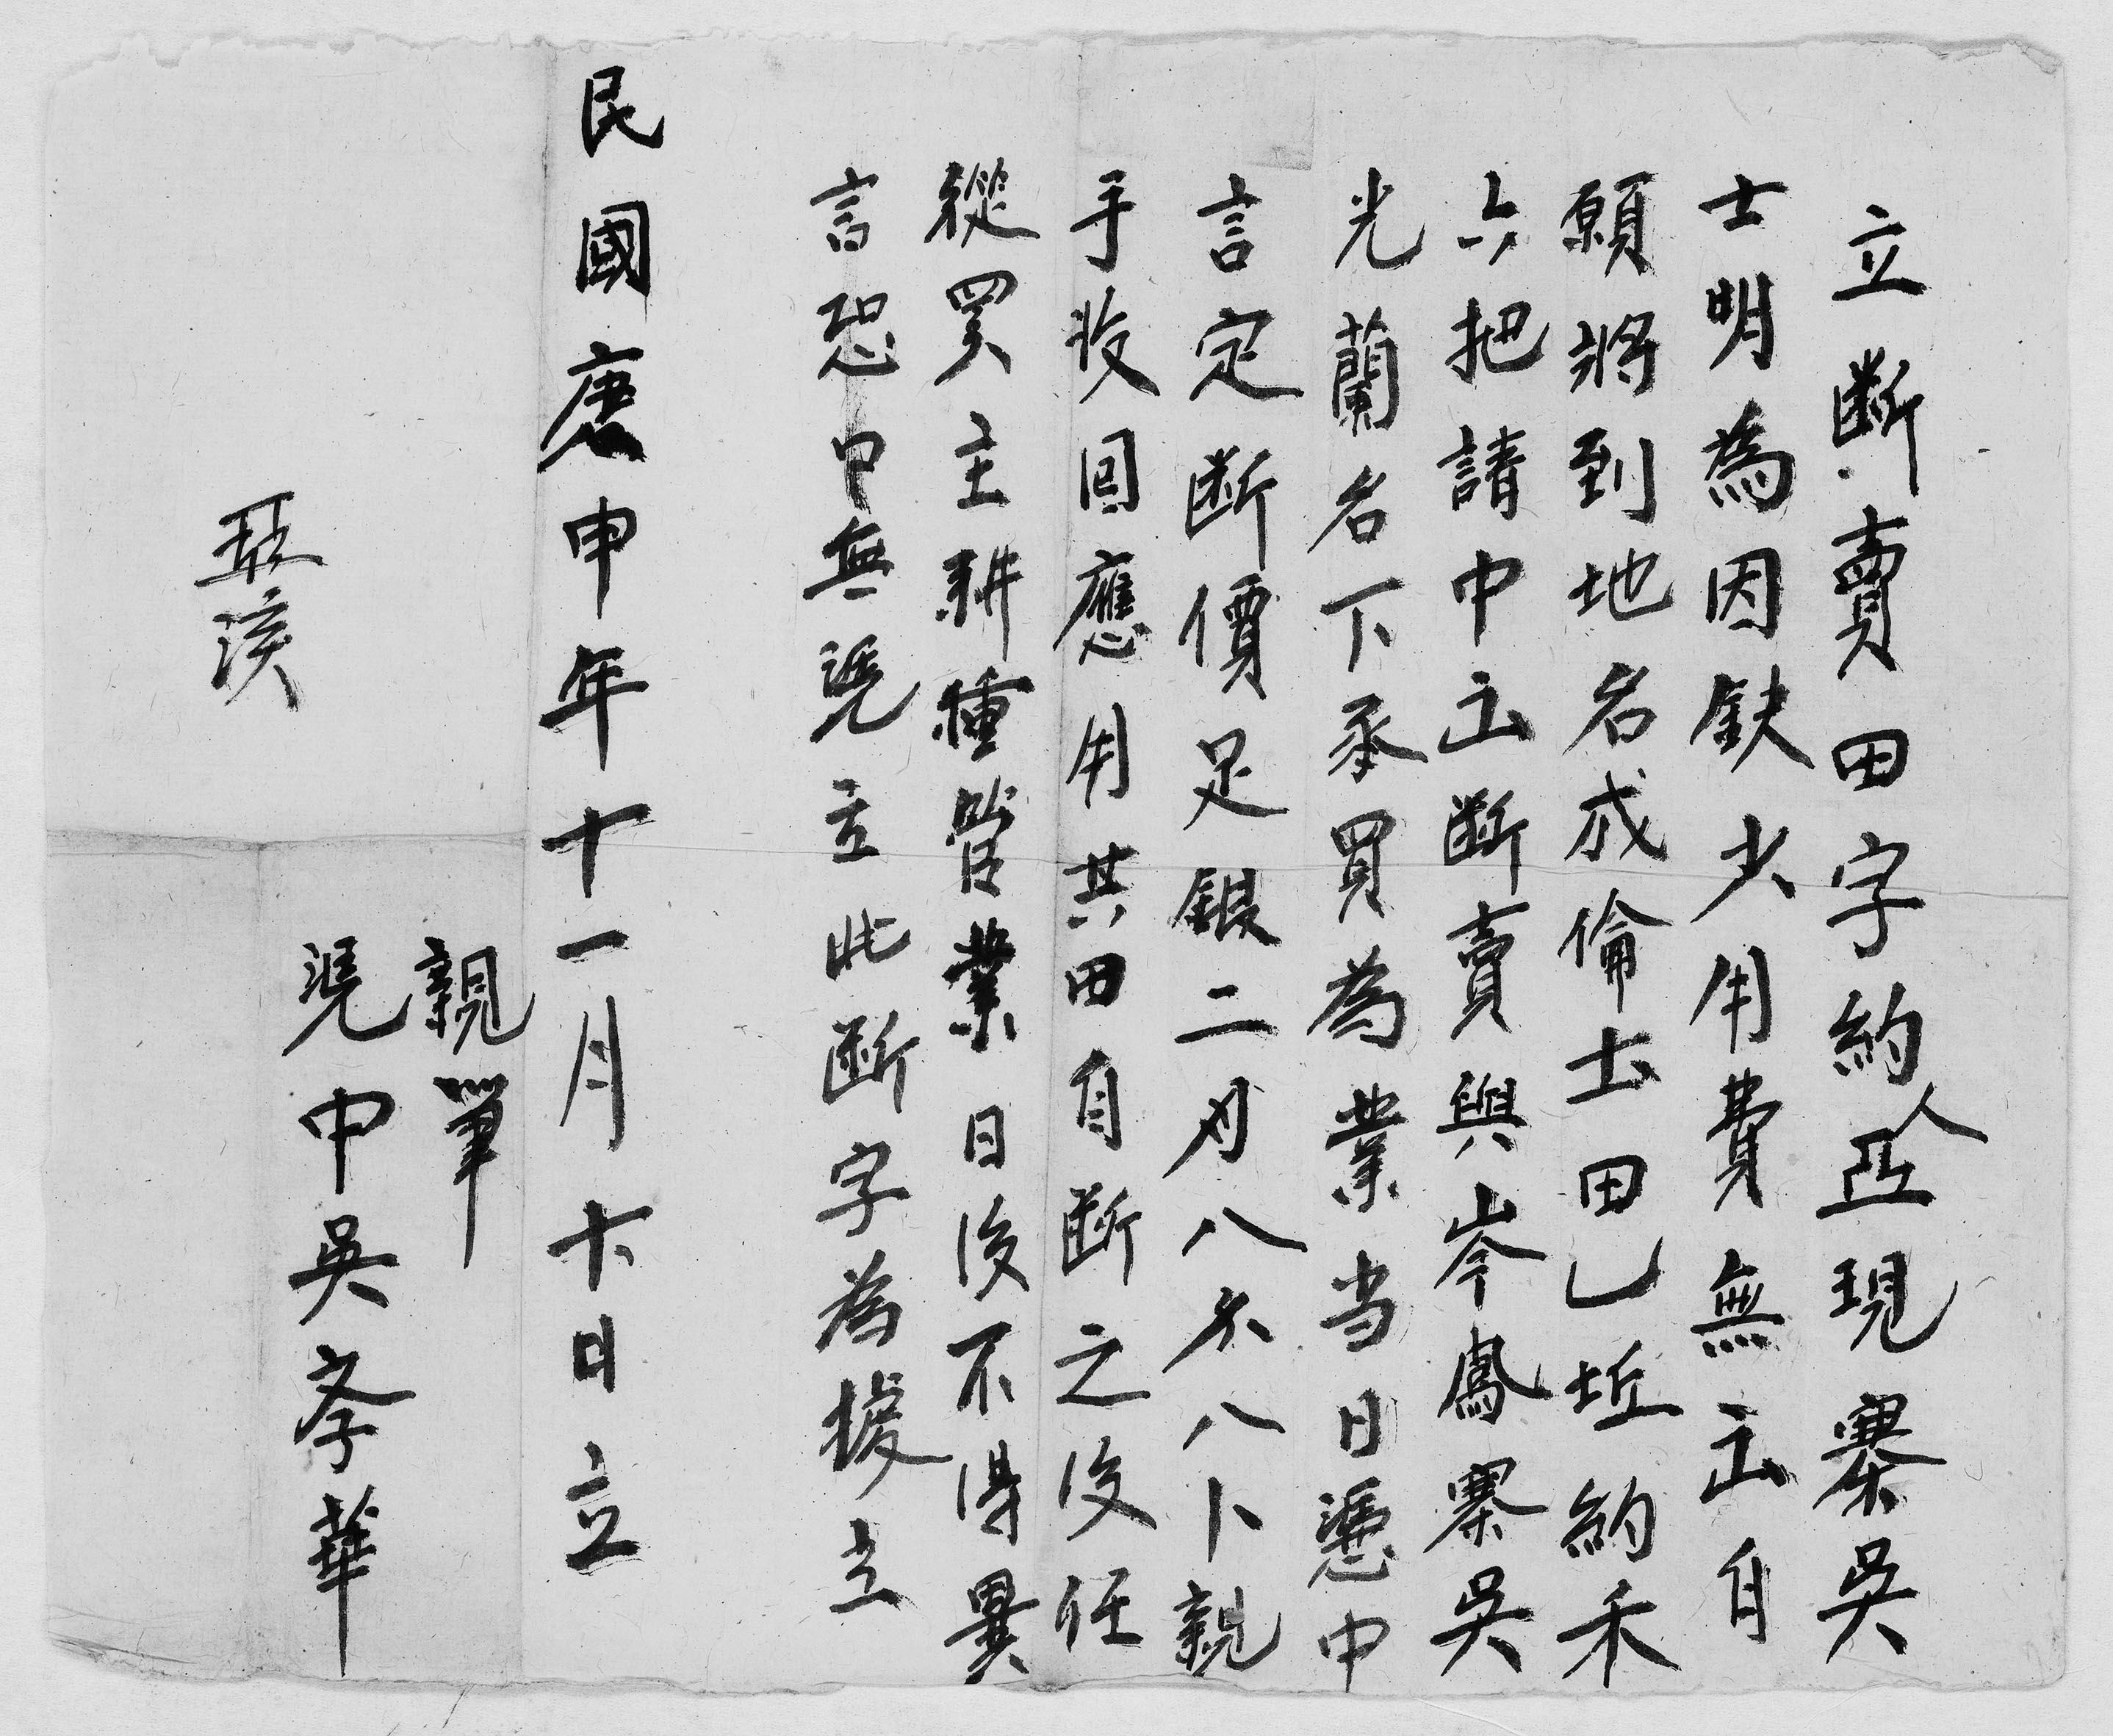 立断賣田字約人亞現寨吳
士明為因缺少用費無出自
願將到地名戍倫士田乚坵約禾
六把請中出断賣與岑鳳寨吳
光蘭名下承買為業当日憑中
言定断價足銀二刃八不八卜親
手收回應用其田自断之後任
從買主耕種管業日後不得異
言恐口無凭立此断字為據立
民國庚申年十一月卡日立
親筆
凭中吳孝華
亞渓